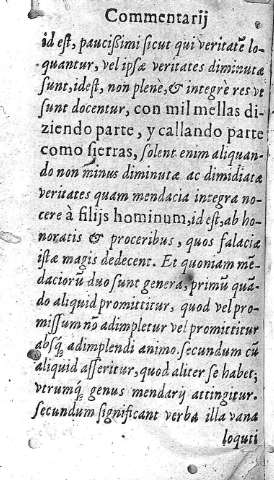 Commentarij
id est, paucissimi sicut qui veritatē lo-
quantur, vel ipsæ veritates diminutæ
sunt, id est, non plenè, & integrè res vt
sunt docentur, con mil mellas di-
ziendo parte, y callando parte
como sierras, solent enim aliquan-
do non minus diminutæ ac dimidiatæ
veritates quam mendacia integra no-
cere à filijs hominum, id est, ab ho-
noratis & proceribus, quos falacia
istæ magis dedecent. Et quoniam mē-
daciorū duo sunt genera, primū quā-
do aliquid promittitur, quod vel pro-
missum nō adimpletur vel promittitur
absq; adimplendi animo. secundum cū
aliquid asseritur, quod aliter se habet;
vtrumq; genus mendarij attingitur.
secundum significant verba illa vana
loquti